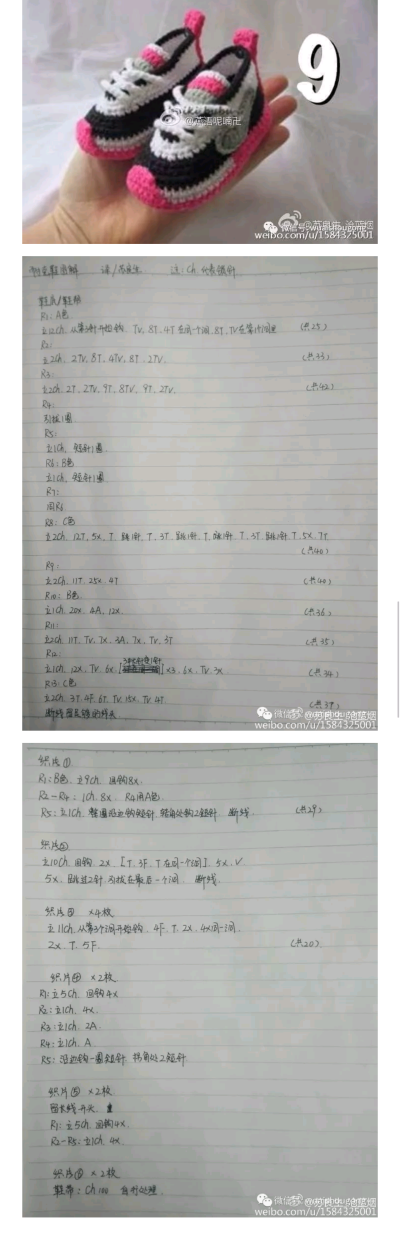 9
@英语呢喃卍
weibo.com/u/1584325001
注：Ch 代表锁针
鞋底/鞋帮
R1：A色
立12Ch，从第3针开始钩，TV，8T，4T在同一个洞，8T，TV在第1个洞里 （共25）
R2：
立2Ch，2TV，8T，4TV，8T，2TV， （共33）
R3：
立2Ch，2T，2TV，9T，8TV，9T，2TV， （共42）
R4：
引拔1圈
R5：
立1Ch，短针1圈
R6：B色
立1Ch，短针1圈
R7：
同R6
R8：C色
立2Ch，12T，5x，T，跳1针，T，3T，跳1针，T，跳1针，T，3T，跳1针，T，5x，7T
（共40）
R9：
立2Ch，11T，25x，4T （共40）
R10：B色
立1Ch，20x，4A，12x， （共36）
R11：
立2Ch，11T，TV，7x，3A，7x，TV，3T （共35）
R12：
立1Ch，12x，TV，6x，[3长针变1针]×3，6x，TV，3x （共34）
R13：C色
立2Ch，3T，4F，6T，TV，15x，TV，4T （共39）
断线
weibo.com/u/1584325001
织片①
R1：B色，立9Ch，回钩8x，
R2－R4：1Ch，8x，R4用A色
R5：立1Ch，整圈沿边钩短针，转角处钩2短针，断线， （共29）
织片②
立10Ch，回钩，2x，[T，3F，T在同一个洞]，5x，V
5x，跳过2针，引拔在最后一个洞，断线，
织片③ ×4枚
立11Ch，从第3个洞开始钩，4F，T，2x，4x同一洞
2x，T，5F， （共20）
织片④ ×2枚
R1：立5Ch，回钩4x
R2：立1Ch，4x，
R3：立1Ch，2A
R4：立1Ch，A
R5：沿边钩一圈短针，拐角处2短针
织片⑤ ×2枚
留长线开头，
R1：立5Ch，回钩4x，
R2－R5：立1Ch，4x，
织片⑥ ×2枚
鞋带：Ch100 自行处理，
weibo.com/u/1584325001